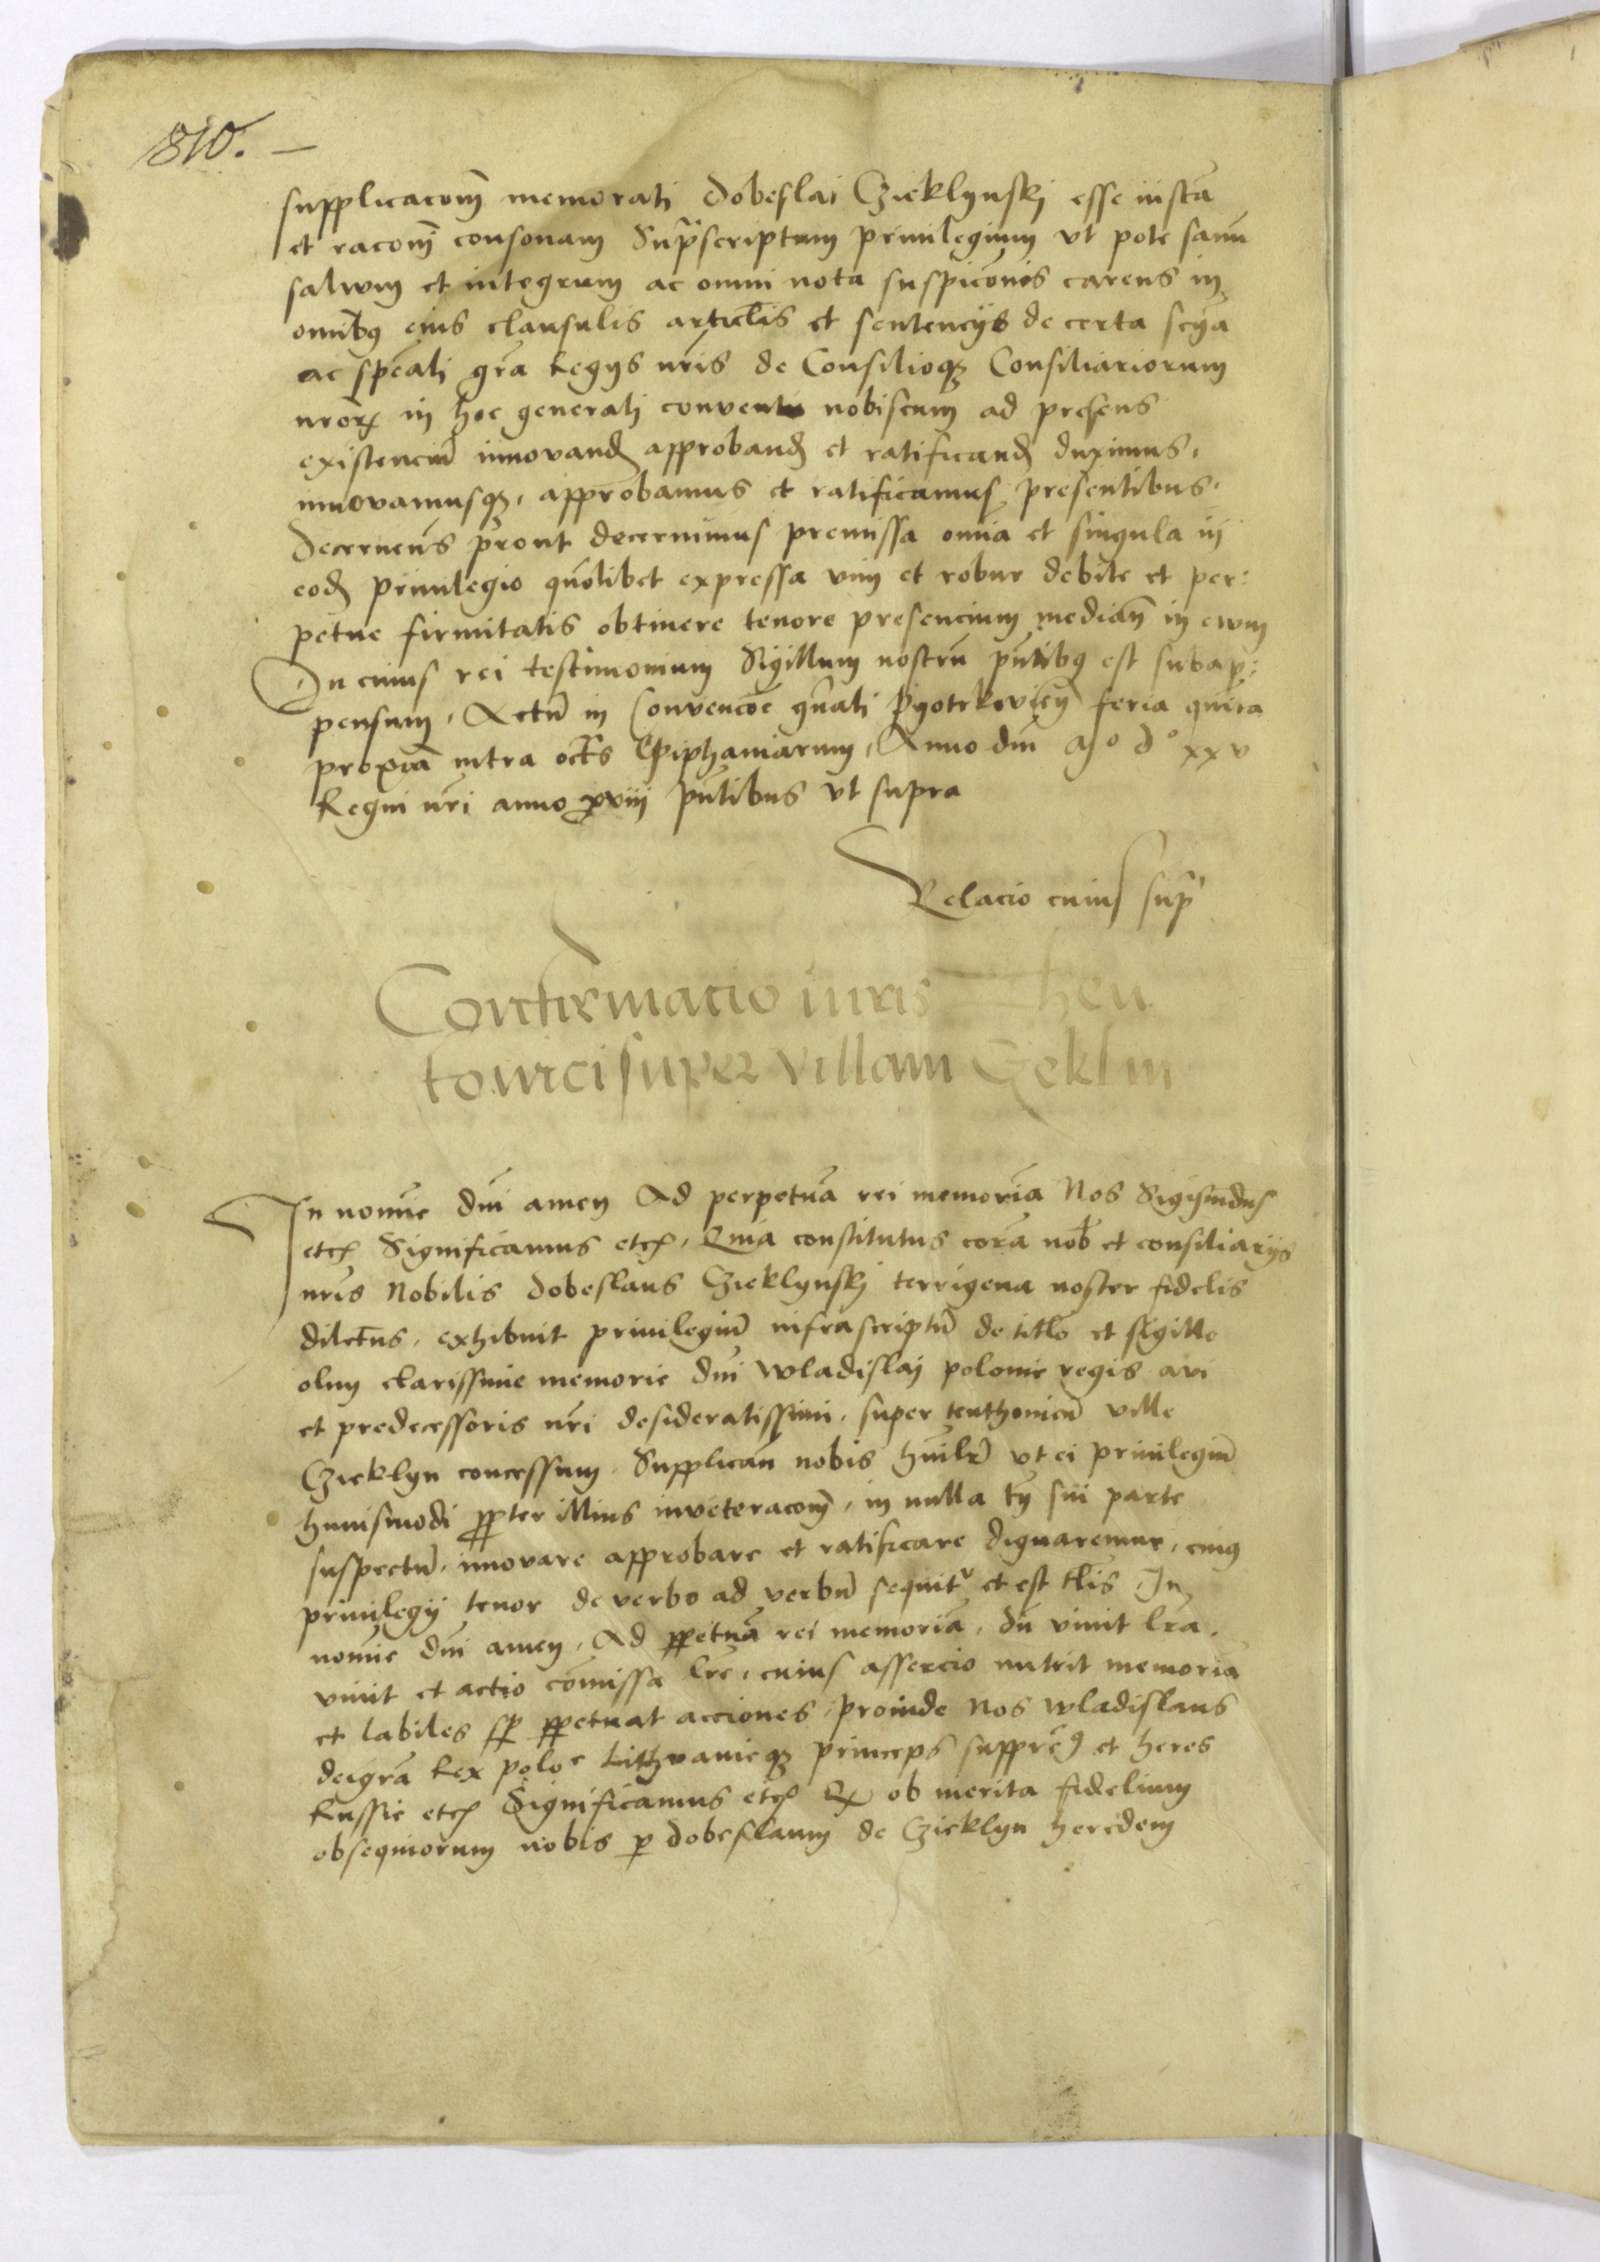 810. —
supplicacom̄ memorati Dobeslai Czieklynskj esse iustā
et racom̄ consonam Sup̄scriptum privilegium vt pote sanū
salvum et integrum ac omni nota suspiciōnis carens in
omībꝰ eius clausulis articłis et sentencijs de certa scīa
ac spēali grā Regijs nr̄is de Consilioqꝫ Consiliariorum
nrōꝝ in hoc generali conventu nobiscum ad presens
existenciū innovand̄ approband̄ et ratificand̄ duximus,
innovamusqꝫ, approbamus et ratificamus presentibus.
Decernen̄s prout decernimus premissa om̄ia et singula in
eod̄ privilegio quōlibet expressa vim et robur debite et per:
petue firmitatis obtinere tenore presencium median̄ in evum
In cuius rei testimonium Sigillum nostrū pn̄tibꝰ est subap:
pensum, Actū in Convencōe gn̄ali Pyotrkovien̄ feria quīta
proxīa intra oct̄s Epiphaniarum, Anno dn̄i Mº dº xxv
Regni nr̄i anno xviij pn̄tibus vt supra
Relacio cuius sup̄
Confirmacio iuris Theu
tonici super villam Czeklin
In nomīe dn̄i amen Ad perpetuā rei memoriā Nos Sigismūdus
etcꝫ Significamus etcꝫ, Quia constitutus corā nob̄ et consiliarijs
nr̄is Nobilis Dobeslaus Czieklynskj terrigena noster fidelis
dilectus, exhibuit privilegiū infrascriptū de titło et sigillo
olim clarissime memorie dn̄i Wladislaj polonie regis avi
et predecessoris nr̄i desideratissimi, super teuthonicū ville
Czieklyn concessum, Supplicān nobis hūilr̄ vt ei privilegiū
huiusmodi ꝓpter illius inveteracom̄, in nulla tn̄ sui parte
suspectū, innovare approbare et ratificare dignaremur, cuiꝰ
privilegij tenor de verbo ad verbū sequitʳ et est tłis In
nomīe dn̄i amen, Ad ꝑpetuā rei memoriā, dū vivit lr̄a,
vivit et actio cōmissa lr̄e, cuius assercio nutrit memoria
et labiles sꝑ ꝑpetuat acciones, proinde Nos Wladislaus
dei grā Rex poloᵉ Lithvanieqꝫ princeps supprēꝰ et heres
Russie etcꝫ Significamus etcꝫ Qꝫ ob merita fidelium
obsequiorum nobis ꝑ Dobeslaum de Czieklyn heredem